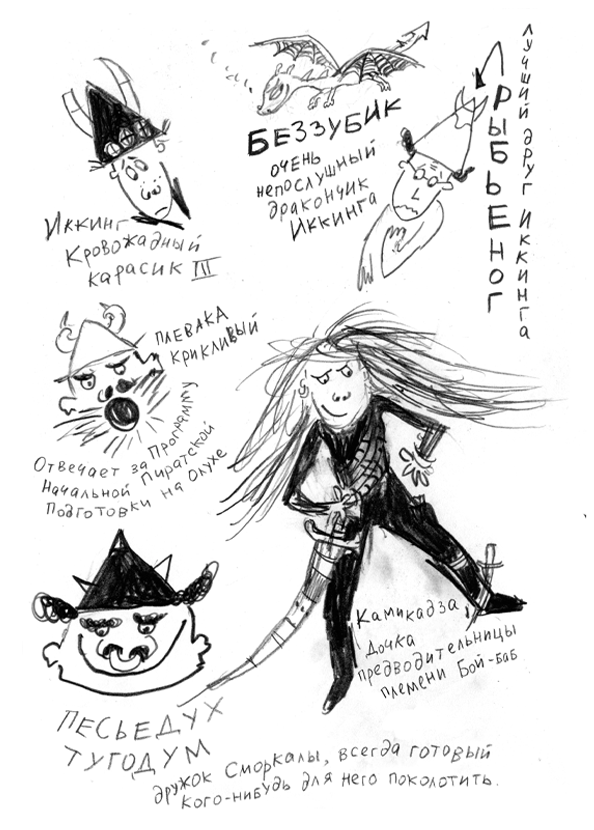 БЕЗЗУБИК
очень
непослушный
дракончик
Иккинга
РЫБЬЕНОГ
лучший друг Иккинга
Иккинг
Кровожадный
карасик III
ПЛЕВАКА
КРИКЛИВЫЙ
Отвечает за Программу
Начальной Пиратской
Подготовки на Олухе
Камикадза
Дочка
предводительницы
племени Бой-баб
ПЕСЬЕДУХ
ТУГОДУМ
дружок Сморкалы, всегда готовый
кого-нибудь для него поколотить.